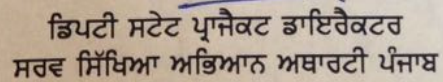 ਡਿਪਟੀ ਸਟੇਟ ਪ੍ਰਾਜੈਕਟ ਡਾਇਰੈਕਟਰ
ਸਰਵ ਸਿੱਖਿਆ ਅਭਿਆਨ ਅਥਾਰਟੀ ਪੰਜਾਬ